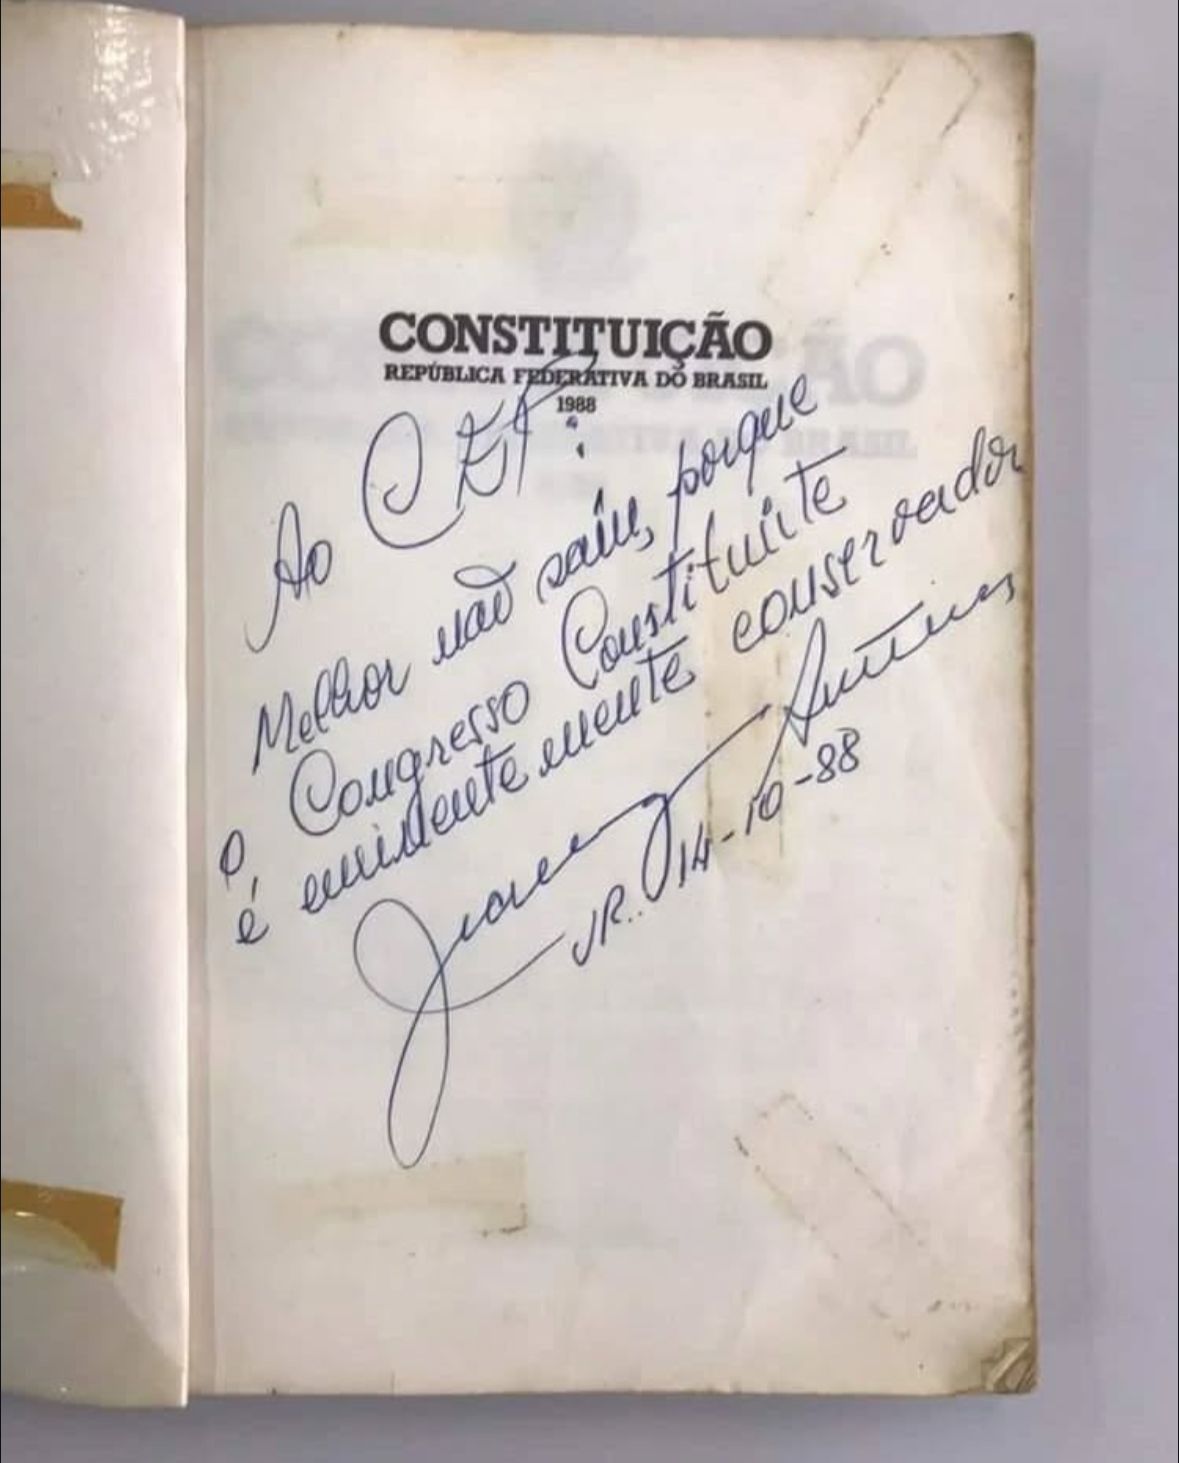 CONSTITUIÇÃO
REPÚBLICA FEDERATIVA DO BRASIL
1988
Ao
Melhor não saiu, porque
o Congresso Constituinte
é eminentemente conservador
Antunes
JR. 14-10-88